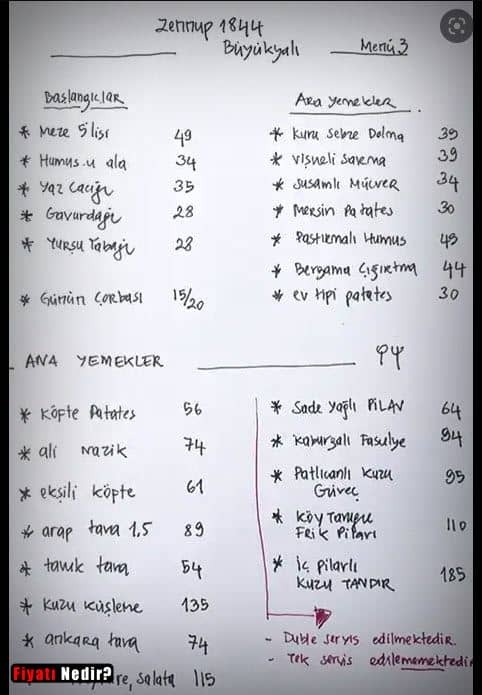 Zennup 1844
Büyükyalı
Menü 3
Başlangıçlar
* Meze 5'lisi 49
* Humus-u ala 34
* Yaz Cacığı 35
* Gavurdağı 28
* Turşu Tabağı 28
* Günün Çorbası 15/20
Ara yemekler
* Kuru Sebze Dolma 39
* Vişneli Sarma 39
* Susamlı Mücver 34
* Mersin Patates 30
* Pastırmalı Humus 45
* Bergama Çığırtma 44
* ev tipi patates 30
ANA YEMEKLER
* Köfte Patates 56
* ali Nazik 74
* ekşili köfte 61
* arap tava 1,5 89
* tavuk tava 54
* Kuzu Küşleme 135
* ankara tava 74
salata 115
* Sade Yağlı PİLAV 64
* Kaburgalı Fasulye 94
* Patlıcanlı Kuzu
Güveç 95
* KÖY Tavuğu
Frik Pilavı 110
* İç pilavlı
KUZU TANDIR 185
- Duble servis edilmektedir.
- Tek servis edilememektedir
Fiyatı Nedir?